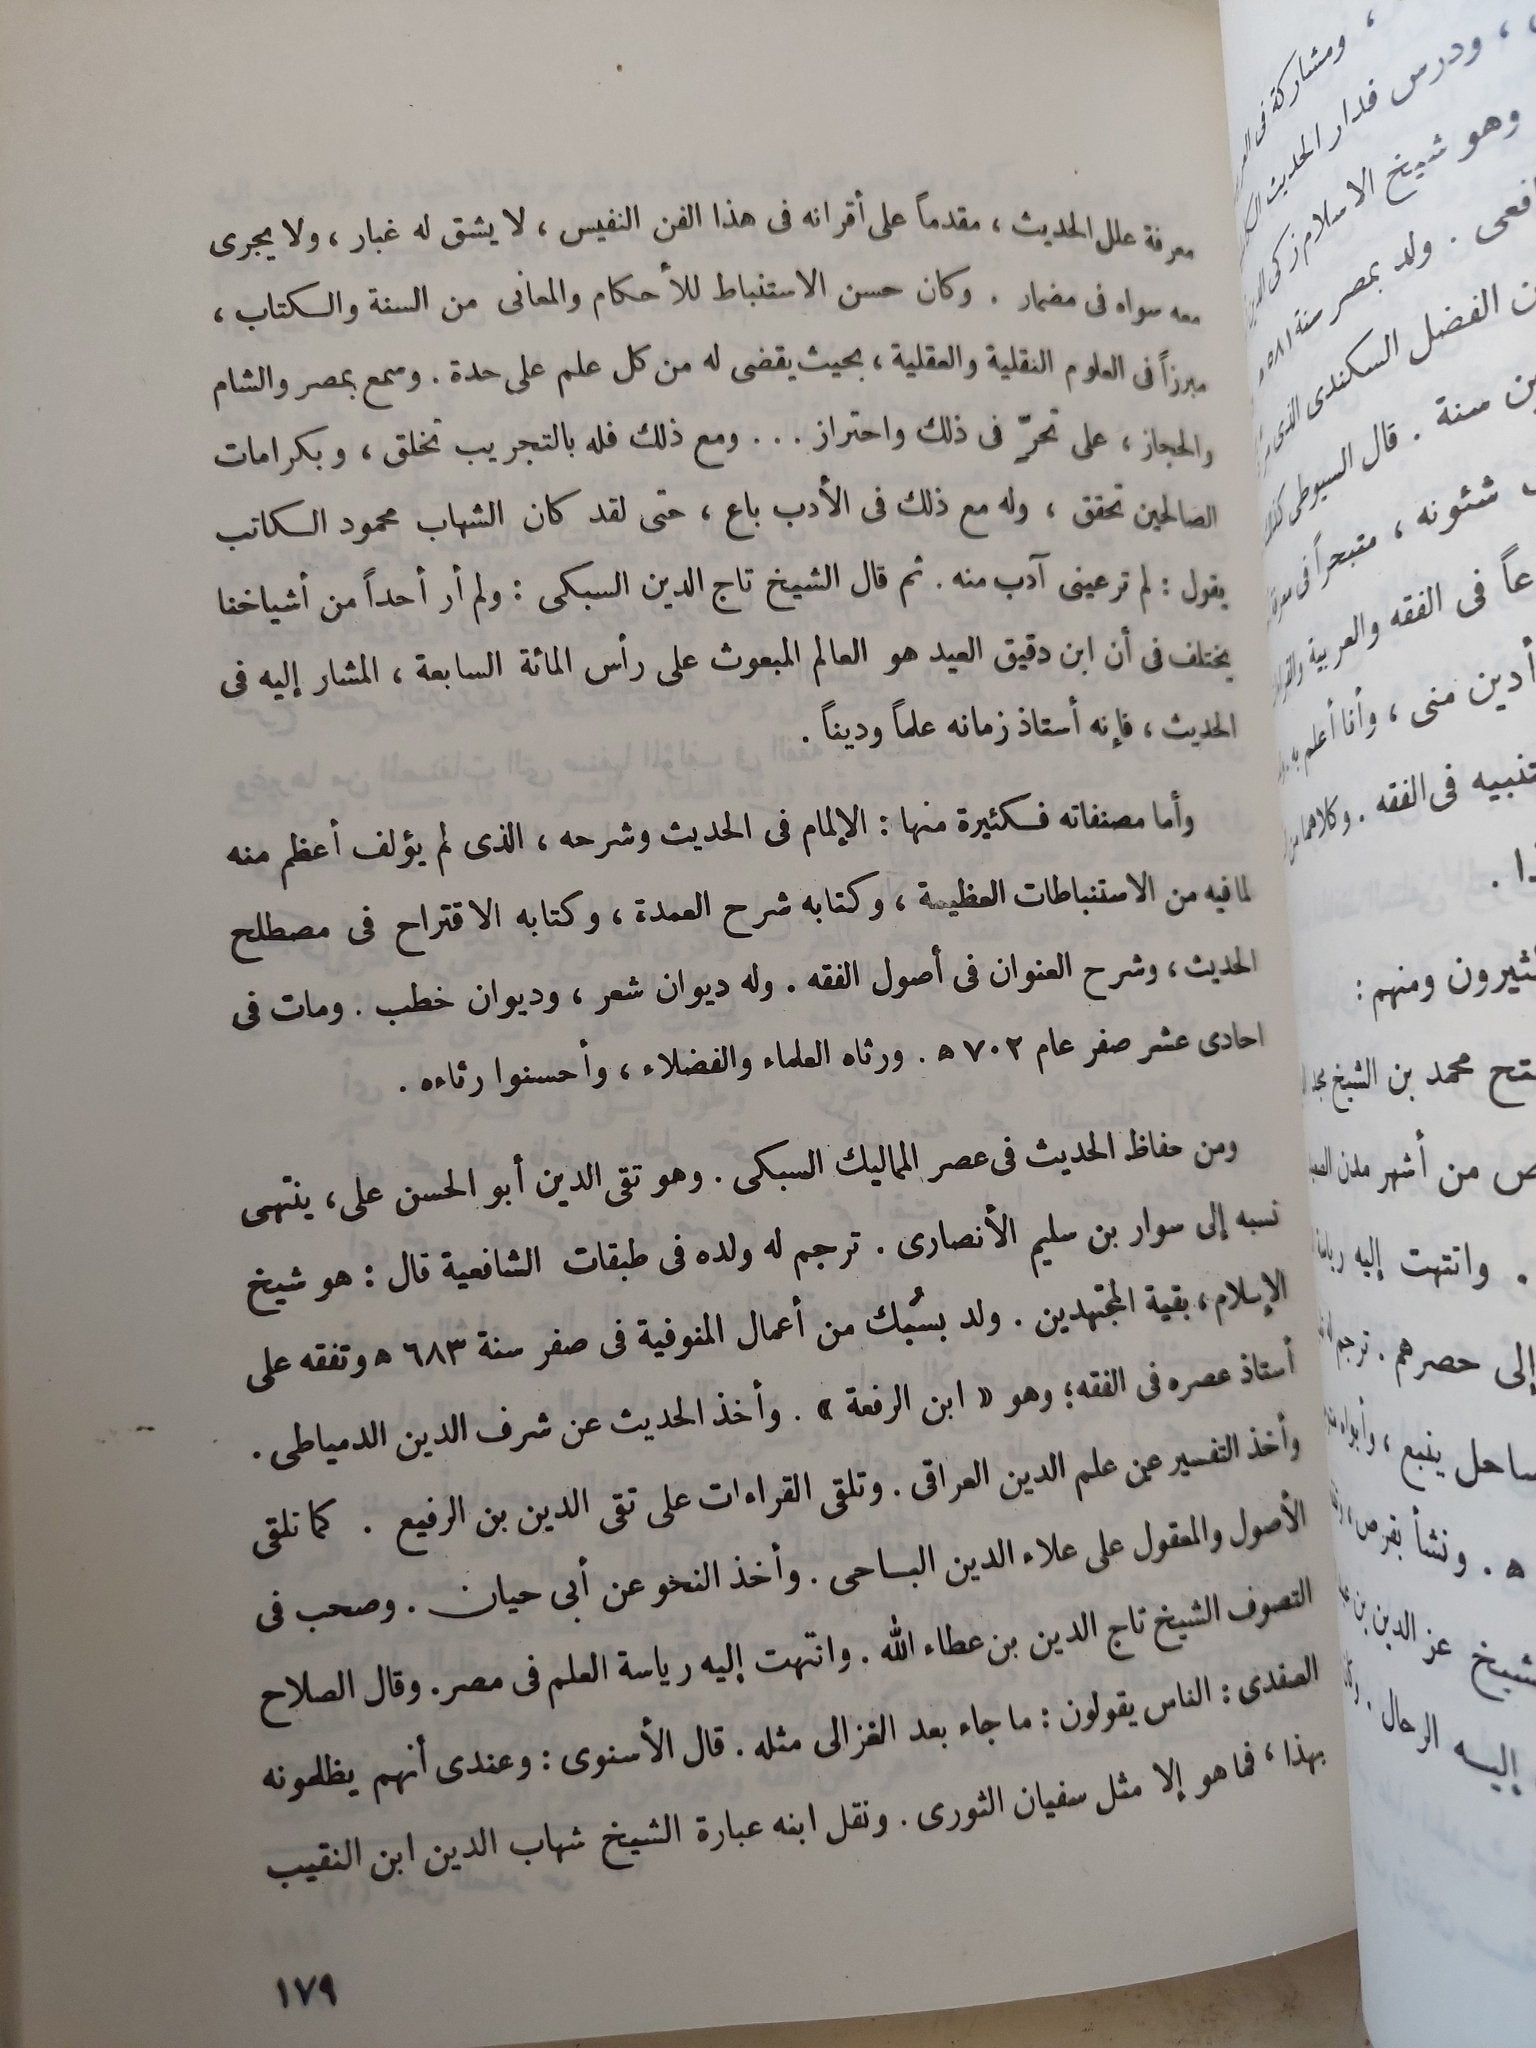 معرفة علل الحديث ، مقدماً على أقرانه فى هذا الفن النفيس ، لا يشق له غبار ، ولا يجرى
معه سواه فى مضمار . وكان حسن الاستنباط للأحكام والمعانى من السنة والكتاب ،
مبرزاً فى العلوم النقلية والعقلية ، بحيث يقضى له من كل علم على حدة . وسمع بمصر والشام
والحجاز ، على تحرّ فى ذلك واحتراز ... ومع ذلك فله بالتجريب تخلق ، وبكرامات
الصالحين تحقق ، وله مع ذلك فى الأدب باع ، حتى لقد كان الشهاب محمود الكاتب
يقول : لم تر عينى آدب منه . ثم قال الشيخ تاج الدين السبكى : ولم أر أحداً من أشياخنا
يختلف فى أن ابن دقيق العيد هو العالم المبعوث على رأس المائة السابعة ، المشار إليه فى
الحديث ، فإنه أستاذ زمانه علماً وديناً .
وأما مصنفاته فكثيرة منها : الإلمام فى الحديث وشرحه ، الذى لم يؤلف أعظم منه
لما فيه من الاستنباطات العظيمة ، وكتابه شرح العمدة ، وكتابه الاقتراح فى مصطلح
الحديث ، وشرح العنوان فى أصول الفقه . وله ديوان شعر ، وديوان خطب . ومات فى
احادى عشر صفر عام ٧٠٢ ه . ورثاه العلماء والفضلاء ، وأحسنوا رثاءه .
ومن حفاظ الحديث فى عصر المماليك السبكى . وهو تقى الدين أبو الحسن على ، ينتهى
نسبه إلى سوار بن سليم الأنصارى . ترجم له ولده فى طبقات الشافعية قال : هو شيخ
الإسلام ، بقية المجتهدين . ولد بسُبك من أعمال المنوفية فى صفر سنة ٦٨٣ ه وتفقه على
أستاذ عصره فى الفقه ؛ وهو « ابن الرفعة » . وأخذ الحديث عن شرف الدين الدمياطى .
وأخذ التفسير عن علم الدين العراقى . وتلقى القراءات على تقى الدين بن الرفيع . كما تلقى
الأصول والمعقول على علاء الدين الباحى . وأخذ النحو عن أبى حيان . وصحب فى
التصوف الشيخ تاج الدين بن عطاء الله . وانتهت إليه رياسة العلم فى مصر . وقال الصلاح
الصفدى : الناس يقولون : ما جاء بعد الغزالى مثله . قال الأسنوى : وعندى أنهم يظلمونه
بهذا ، فما هو إلا مثل سفيان الثورى . ونقل ابنه عبارة الشيخ شهاب الدين ابن النقيب
١٧٩
، ومشاركة فى
، ودرس فدار الحديث
وهو شيخ الاسلام زكى
. ولد بمصر سنة ٥٨١
الفضل السكندى الذى
سنة . قال السيوطى
شئونه ، متبحراً فى
فى الفقه والعربية
أدين منى ، وأنا أعلم به
فى الفقه . وكلاهما من
ومنهم :
محمد بن الشيخ
من أشهر مدن
. وانتهت إليه
إلى حصرهم . ترجم
ينبع ، وأبواه
ه . ونشأ بقوص ،
عز الدين بن
إليه الرحال .